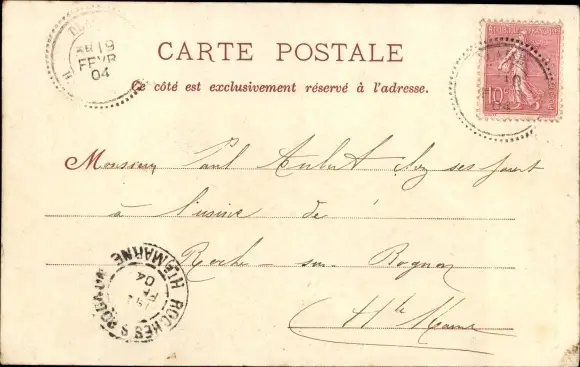 19
FEVR
04
CARTE POSTALE
Ce côté est exclusivement réservé à l'adresse.
10
Monsieur Paul Aubert chez ses parents
à l'usine de
Roche-sur-Rognon
Hte Marne
ROCHES S ROGNON
HTE MARNE
04